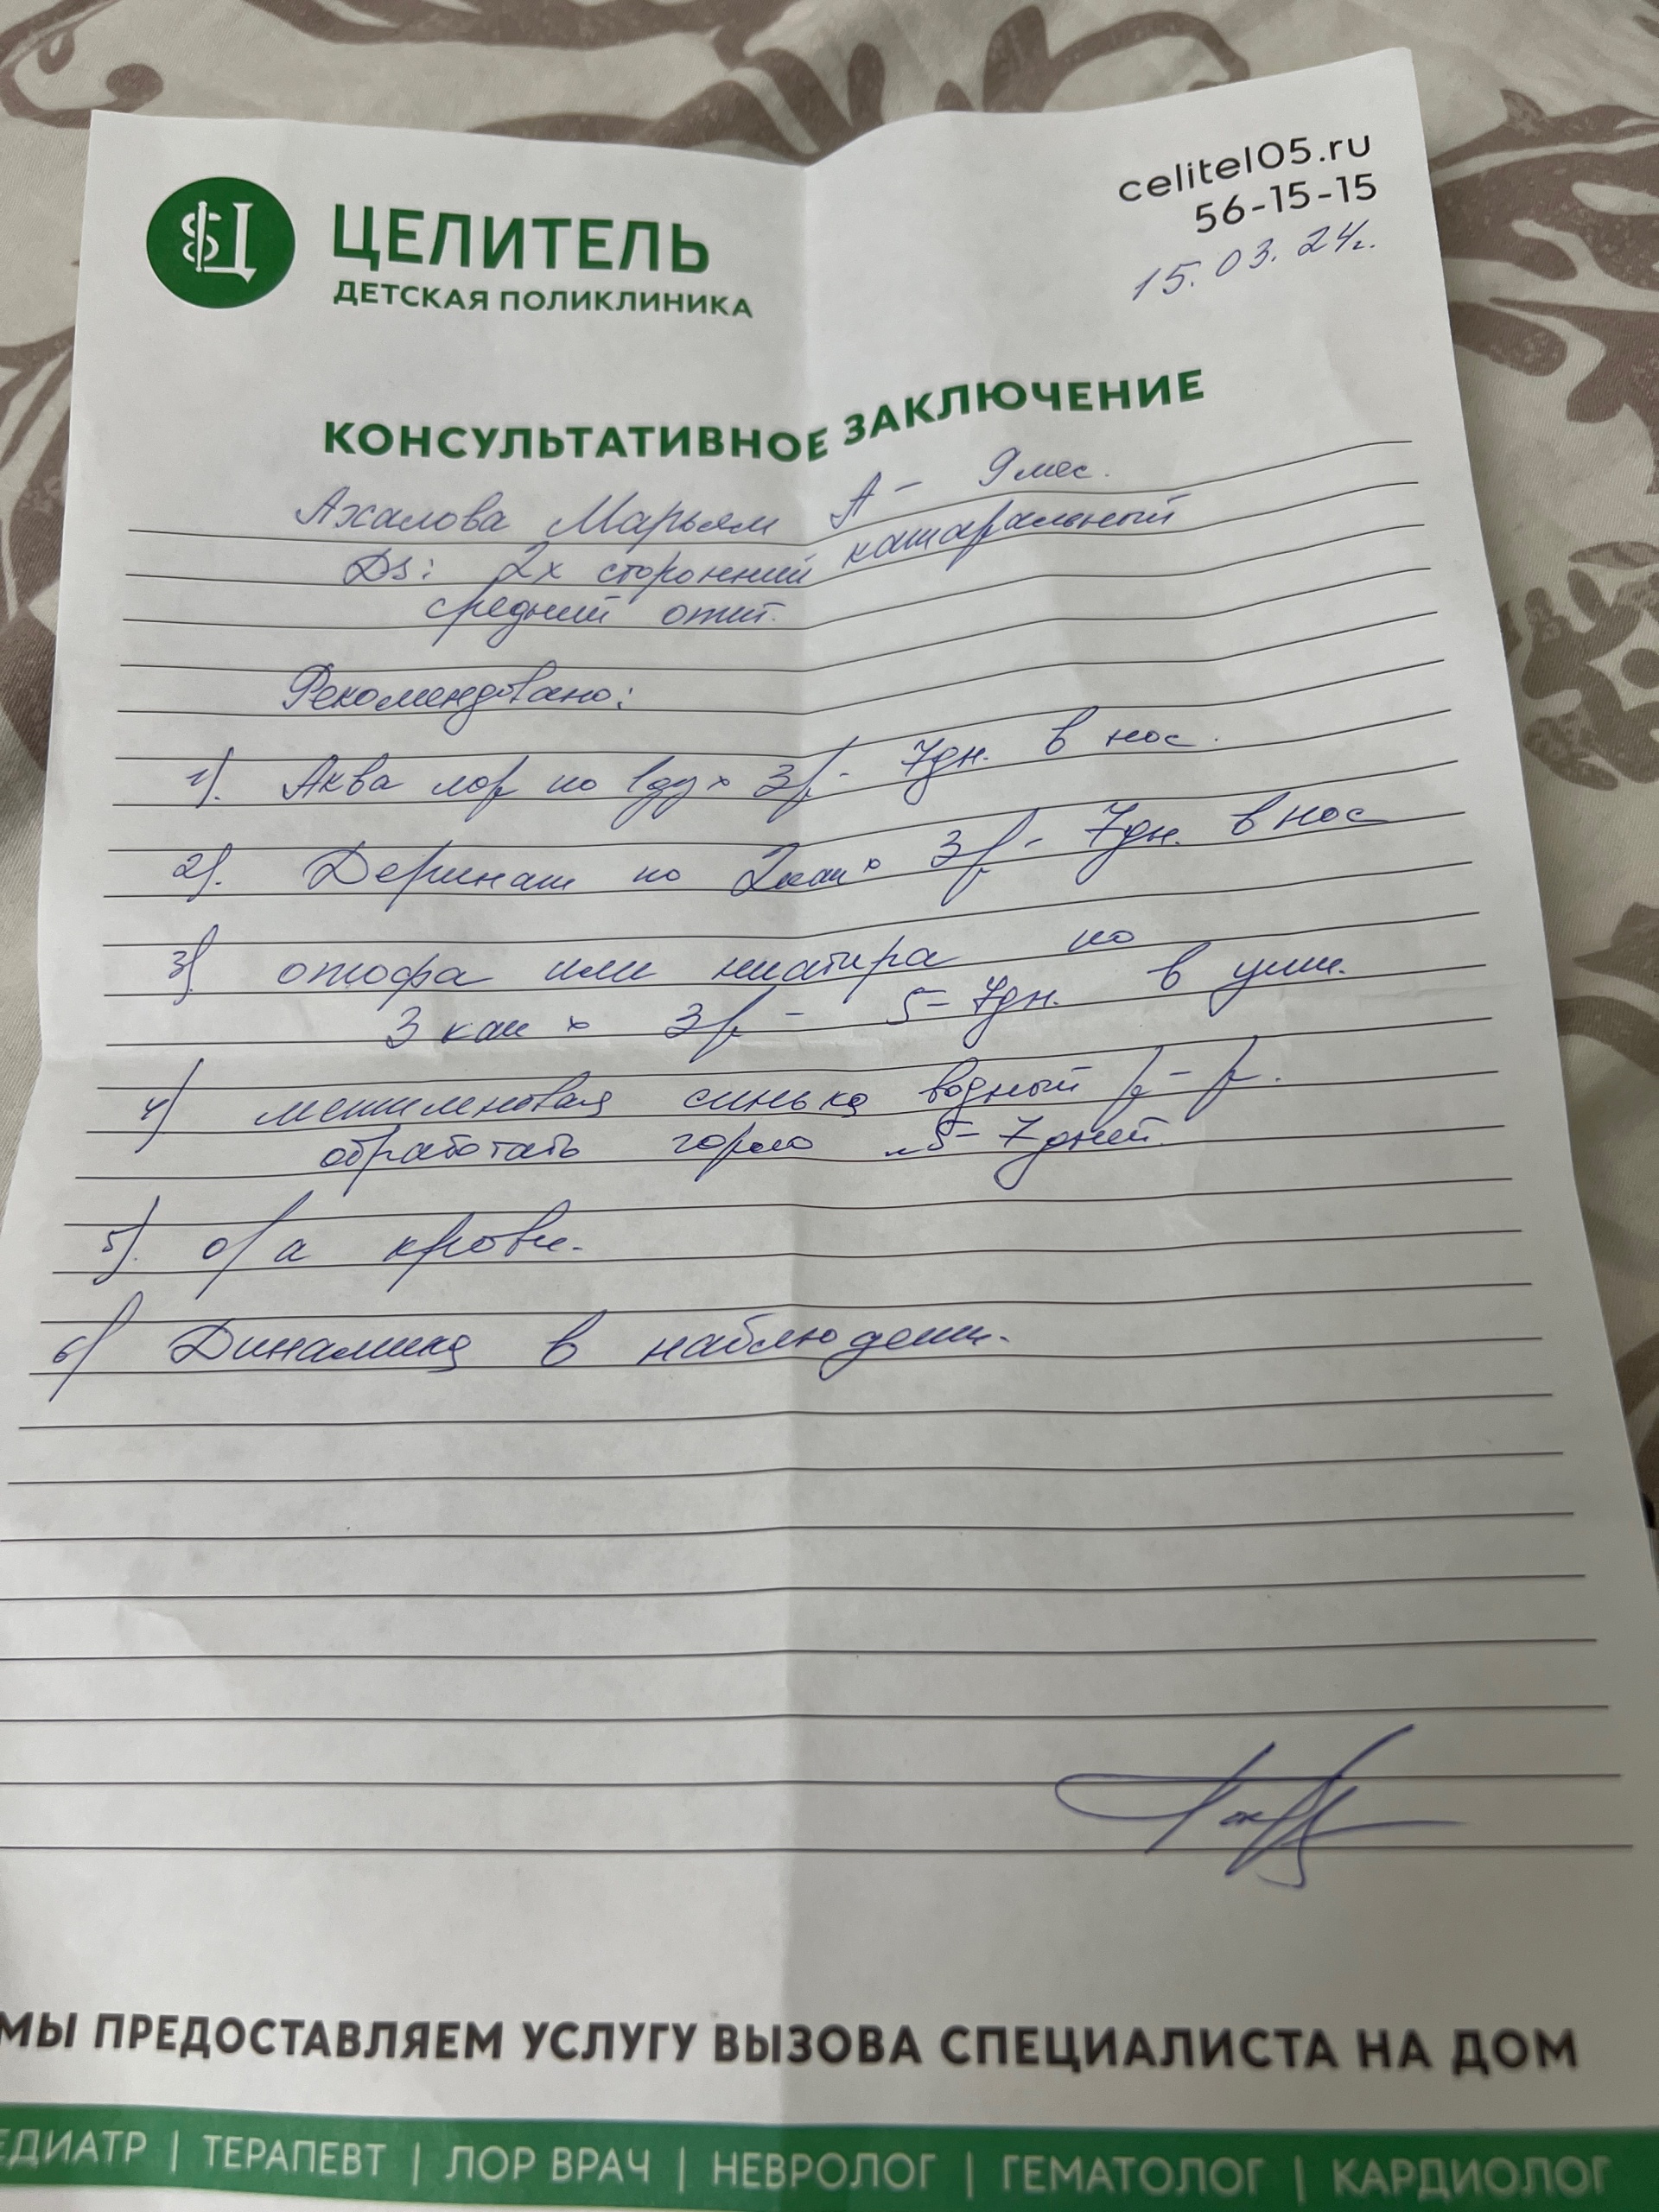 ЦЕЛИТЕЛЬ
ДЕТСКАЯ ПОЛИКЛИНИКА
celitel05.ru
56-15-15
15.03.24г.
КОНСУЛЬТАТИВНОЕ ЗАКЛЮЧЕНИЕ
Марьям А - 9 мес.
Ds: 2х сторонний катаральный
средний отит.
Рекомендовано:
1). Аква лор по 1 д х 3 р - 7 дн. в нос.
2). Деринат по 2 кап х 3 р - 7 дн. в нос
3) отофа или по
3 кап х 3 р - 5-7 дн. в уши.
4) метиленовая синька водный р-р.
обработать горло 5-7 дней.
5). о/а крови.
6) Динамика в наблюдении.
МЫ ПРЕДОСТАВЛЯЕМ УСЛУГУ ВЫЗОВА СПЕЦИАЛИСТА НА ДОМ
ЕДИАТР | ТЕРАПЕВТ | ЛОР ВРАЧ | НЕВРОЛОГ | ГЕМАТОЛОГ | КАРДИОЛОГ